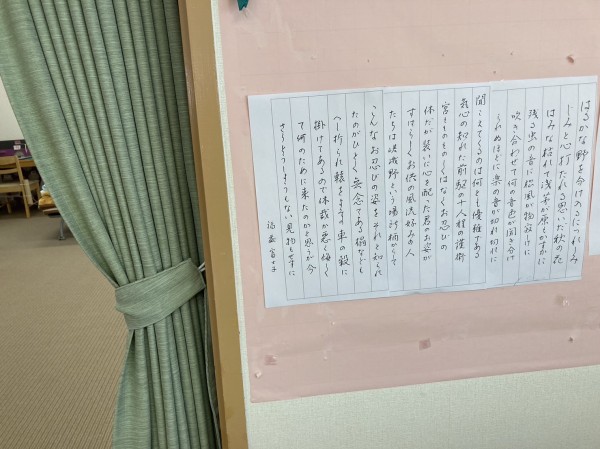 はるかな野を分け入るとられしみ
じみと心打たれる思い秋の花
はみな枯れて浅茅の原もかすかに
残る虫の音に松風が寂しげに
吹き合わせて何の音色か聞き分け
られぬほどに楽の音が切れ切れに
聞こえてくるのは何とも優雅である
気心の知れた前駆の十人程の護衛
宮
体だが装いに心を配った君のお姿が
すばらしくお供の風流好みの人
たちは嵯峨野という場所柄からして
こんなお忍びの姿をそれと知られ
たのがひどく無念である榻なども
へし折られ轅をます車の轂に
掛けてあるので体裁が悪く悔しく
て何のために来たのかと思うが今
さらどうしようもない見物もせずに